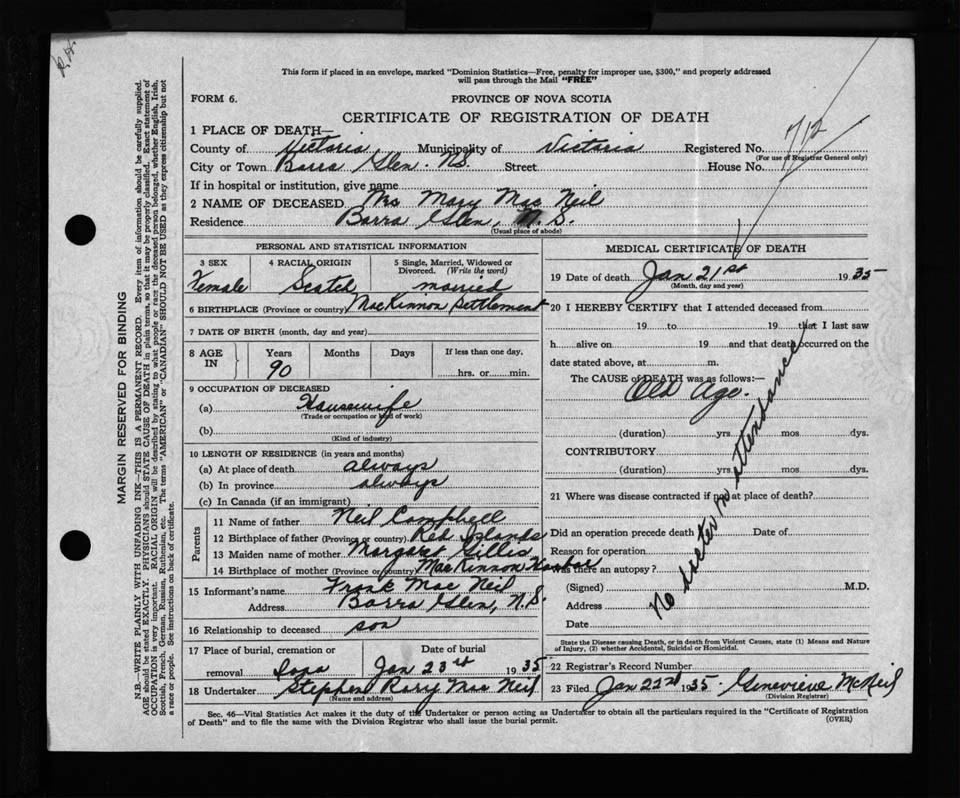 This form if placed in an envelope, marked "Dominion Statistics—Free, penalty for improper use, $300," and properly addressed
will pass through the Mail "FREE"
FORM 6.
PROVINCE OF NOVA SCOTIA
CERTIFICATE OF REGISTRATION OF DEATH
712
1 PLACE OF DEATH—
County of Victoria, Municipality of Victoria Registered No.
(For use of Registrar General only)
City or Town Barra Glen. N.S. Street House No.
If in hospital or institution, give name
2 NAME OF DECEASED Mrs Mary Mac Neil
Residence Barra Glen, N.S.
(Usual place of abode)
PERSONAL AND STATISTICAL INFORMATION
3 SEX 4 RACIAL ORIGIN 5 Single, Married, Widowed or Divorced. (Write the word)
Female Scotch married
6 BIRTHPLACE (Province or country) MacKinnon Settlement
7 DATE OF BIRTH (month, day and year)
8 AGE IN Years Months Days If less than one day.
90 hrs. or min.
9 OCCUPATION OF DECEASED
(a) Housewife
(Trade or occupation or kind of work)
(b)
(Kind of industry)
10 LENGTH OF RESIDENCE (in years and months)
(a) At place of death always
(b) In province always
(c) In Canada (if an immigrant)
Parents
11 Name of father Neil Campbell
12 Birthplace of father (Province or country) Red Islands
13 Maiden name of mother Margaret Gillis
14 Birthplace of mother (Province or country) MacKinnon Harbor
15 Informant's name Frank Mac Neil
Address Barra Glen, N.S.
16 Relationship to deceased son
17 Place of burial, cremation or removal Date of burial
Iona Jan 23rd 1935
18 Undertaker Stephen Rory Mac Neil
(Name and address)
MEDICAL CERTIFICATE OF DEATH
19 Date of death Jan 21st 1935
(Month, day and year)
20 I HEREBY CERTIFY that I attended deceased from
19 to 19 that I last saw
h alive on 19 and that death occurred on the
date stated above, at m.
The CAUSE of DEATH was as follows:—
Old Age.
(duration) yrs. mos. dys.
CONTRIBUTORY
(duration) yrs. mos. dys.
21 Where was disease contracted if not at place of death?
Did an operation precede death Date of
Reason for operation
Was there an autopsy?
(Signed) M.D.
Address
Date
No doctor in attendance
State the Disease causing Death, or in death from Violent Causes, state (1) Means and Nature
of Injury, (2) whether Accidental, Suicidal or Homicidal.
22 Registrar's Record Number
23 Filed Jan 22nd 1935. Genevieve McNeil
(Division Registrar)
Sec. 46—Vital Statistics Act makes it the duty of the Undertaker or person acting as Undertaker to obtain all the particulars required in the "Certificate of Registration
of Death" and to file the same with the Division Registrar who shall issue the burial permit.
(OVER)
MARGIN RESERVED FOR BINDING
N.B.—WRITE PLAINLY WITH UNFADING INK—THIS IS A PERMANENT RECORD. Every item of information should be carefully supplied.
AGE should be stated EXACTLY. PHYSICIANS should STATE CAUSE OF DEATH in plain terms, so that it may be properly classified. Exact statement of
OCCUPATION is very important. RACIAL ORIGIN will be described by stating to what people or race the deceased person belonged, whether English, Irish,
Scottish, French, German, Russian, Ruthenian, etc. The terms "AMERICAN" or "CANADIAN" SHOULD NOT BE USED as they express citizenship but not
a race or people. See instructions on back of certificate.